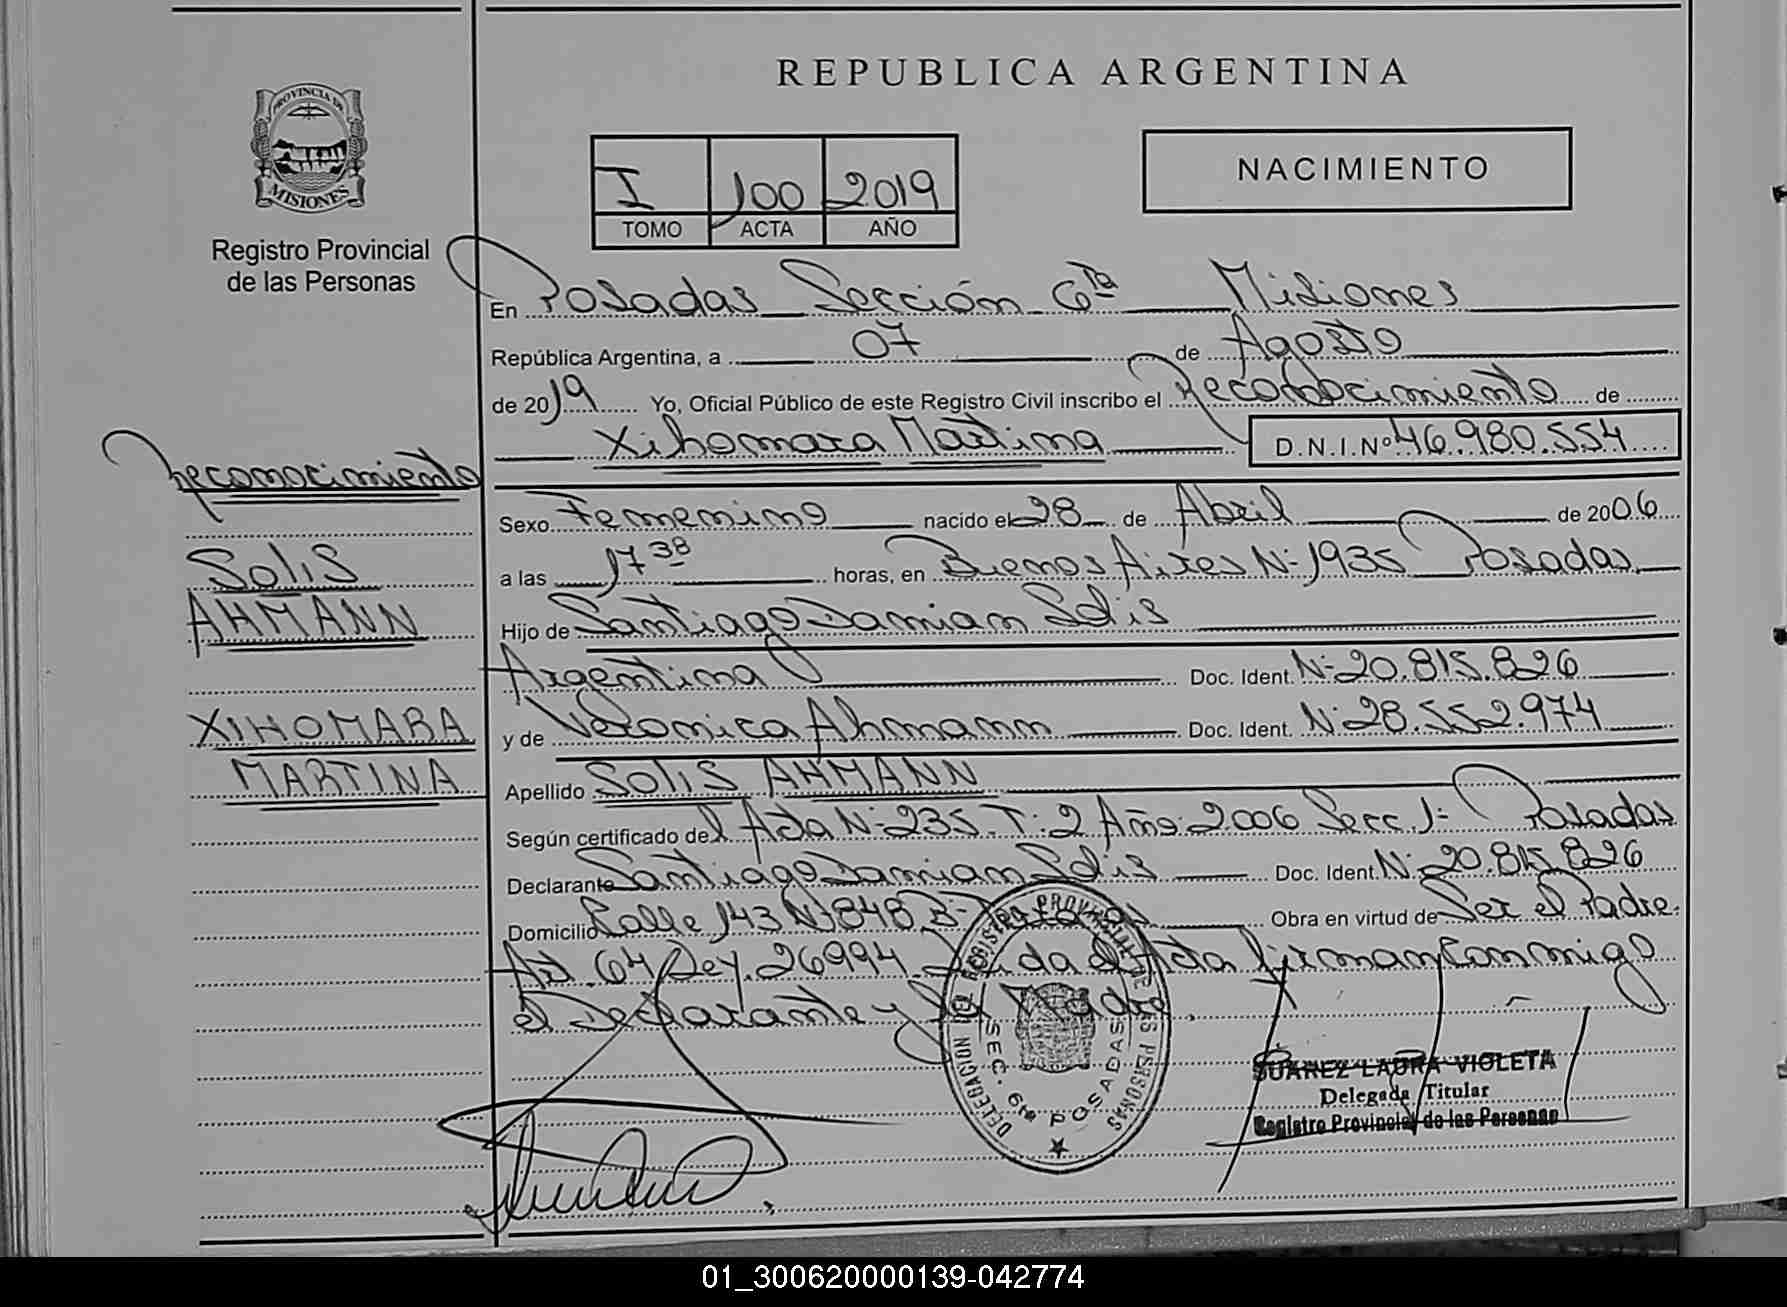 REPUBLICA ARGENTINA
PROVINCIA DE
MISIONES
Registro Provincial
de las Personas
I 100 2019
TOMO ACTA AÑO
NACIMIENTO
En Posadas Sección 6ta Misiones
República Argentina, a 07 de Agosto
de 2019 Yo, Oficial Público de este Registro Civil inscribo el Reconocimiento de
Xihomara Martina D.N.I.Nº 46.980.554
Reconocimiento
Solis
AHMANN
XIHOMARA
MARTINA
Sexo Femenino nacido el 28 de Abril de 2006
a las 17 38 horas, en Buenos Aires Nº 1935 Posadas
Hijo de Santiago Damian Solis
Argentina Doc. Ident. Nº 20.815.826
y de Veronica Ahmann Doc. Ident. Nº 28.552.974
Apellido SOLIS AHMANN
Según certificado del Acta Nº 235. T: 2 Año: 2006 Secc. 1º Posadas
Declarante Santiago Damian Solis Doc. Ident. Nº 20.815.826
Domicilio Calle 143 Nº 848 Bº Obra en virtud de Ser el Padre.
Art. 64 Ley. 26994 Leida el Acta firman Conmigo
el Declarante y la Madre.
DELEGACION DEL REGISTRO PROVINCIAL DE LAS PERSONAS
SEC. 6ta POSADAS
SUAREZ LAURA VIOLETA
Delegada Titular
Registro Provincial de las Personas
01_300620000139-042774